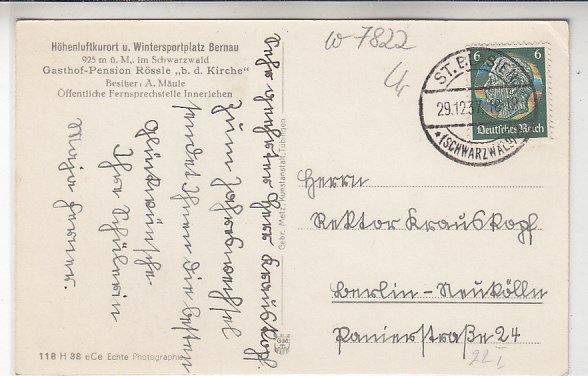 Höhenluftkurort u. Wintersportplatz Bernau
925 m ü. M., im Schwarzwald
Gasthof-Pension Rössle „b. d. Kirche"
Besitzer: A. Mäule
Öffentliche Fernsprechstelle Innerlehen
Sehr geehrter Herr Krauskopf.
Zum Jahreswechsel
sendet Ihnen die besten
Glückwünsche
Ihre Schülerin
Gebr. Metz, Kunstanstalt, Tübingen
118 H 38 eCe Echte Photographie
W 7822
ST. BLASIEN
29.12.37
* (SCHWARZWALD)
6 6
Deutsches Reich
Herrn
Rektor Krauskopf
Berlin-Neukölln
Panierstraße 24
22 I